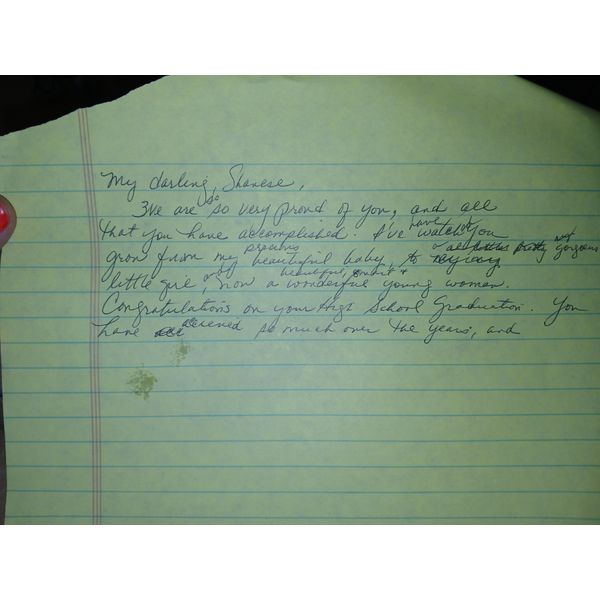 My darling, Shanese,
We are so so very proud of you, and all
that you have accomplished. I've have watched you
grow from my precious beautiful baby, to a gorgeous
little girl, now a beautiful, smart & wonderful young woman.
Congratulations on your High School Graduation. You
have so much over the years, and